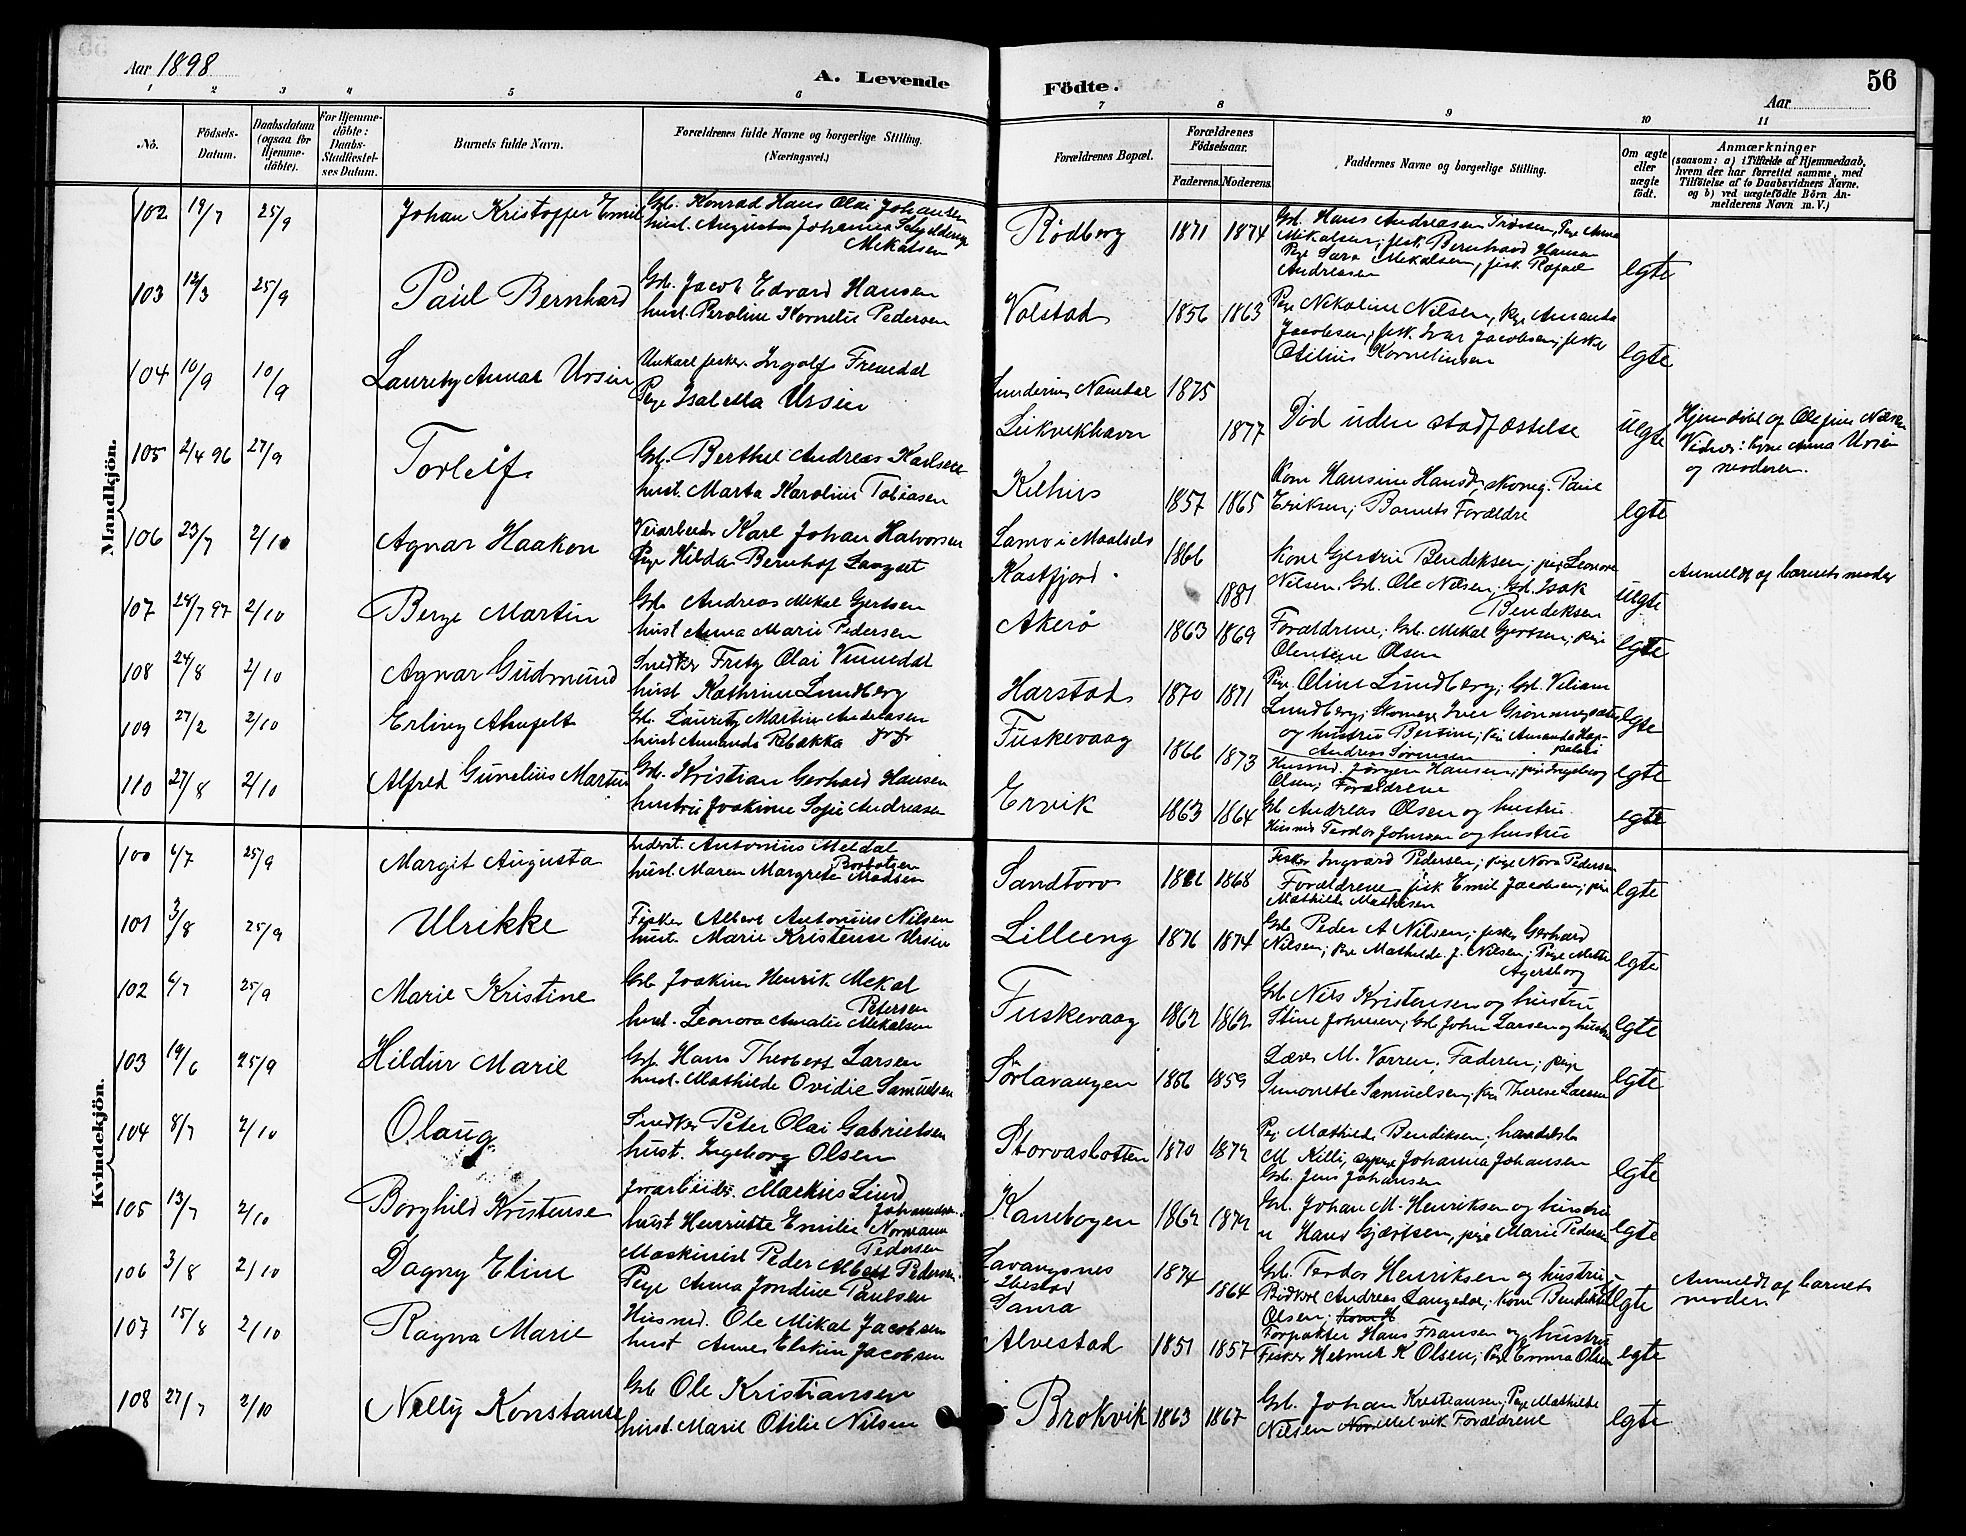 Aar 1898
A. Levende Födte.
56
Aar
1 2 3 4 5 6 7 8 9 10 11
No.
Födsels-Datum.
Daabsdatum (ogsaa for Hjemme-döbte).
For Hjemme-döbte: Daabs-Stadfæstel-ses Datum.
Barnets fulde Navn.
Forældrenes fulde Navne og borgerlige Stilling. (Næringsvei.)
Forældrenes Bopæl.
Forældrenes Födselsaar.
Faderens. Moderens.
Faddernes Navne og borgerlige Stilling.
Om ægte eller uægte födt.
Anmærkninger
(saasom: a) i Tilfælde af Hjemmedaab, hvem der har forrettet samme, med Tilföielse af to Daabsvidners Navne. og b) ved uægtefödte Börn An-melderens Navn m. V.)
Mandkjön.
102 19/7 25/9 Johan Kristoffer Emil Gbr. Konrad Hans Olai Johansen
hust. Augusta Johanna
Mekalsen
Rödberg 1871 1874 Gbr. Hans Andreasen Pige Anna
Mikalsen, fisk. Bernhard Hansen
Pige Sara Mekalsen, fisk. Rafael
Andreasen ægte
103 12/3 25/9 Paul Bernhard Gbr. Jacob Edvard Hansen
hust. Peroline Kornelie Pedersen
Volstad 1856 1863 Pige Nekoline Nilsen, Pige Amanda
Jacobsen, fisk. Ivar Jacobsen, fisker
Otilius Kornelinsen ægte
104 10/9 10/9 Lauritz Annar Ursin Unkarl fisker Ingolf Fremdal
Pige Isabella Ursin
Namdal 1875
1877 Död uden stadfæstelse uegte
Hjemdöbt af Olefine
Vidner: Pige Anna Ursin
og moderen.
105 2/4 96 27/9 Torleif Gbr. Berthel Andreas Karlsen
hust. Marta Karoline Tobiasen
Kilhus 1857 1865 Kone Hansine Hansd, skomg. Paul
Eriksen, Barnets Forældre ægte
106 23/7 2/10 Agnar Haakon Veiarbeider Karl Johan Halvorsen
Pige Hilda Bernhof Langset
i Maalselv
Kastfjord 1866
1881 Kone Gjertine Bendiksen, pige Leonore
Nilsen, Gbr. Ole Nilsen, Gbr. Isak
Bendiksen uegte
Anmeldt af barnets moder
107 24/7 97 2/10 Berge Martin Gbr. Andreas Mekal Gjertsen
hust Anna Marie Pedersen
Akerö 1863 1869 Forældrene, Gbr. Mekal Gjertsen, pige
Olentine Olsen ægte
108 24/8 2/10 Agnar Gudmund Snedker Fritz Olai Vinnedal
hust Kathrine Lundberg
Harstad 1870 1871 Pige Oline Lundberg, Gbr. Viliam
Lundberg, Skomager Iver
og hustru Bersine, pige Amanda ægte
109 27/2 2/10 Erling Ahnfelt Gbr. Lauritz Martin Andreasen
hust Amanda Rebakka
Fuskevaag 1866 1873 Andreas Sörensen
Husmd. Jörgen Hansen, pige Ingeborg
Olsen, Forældrene ægte
110 27/8 2/10 Alfred Gunelius Martin Gbr. Kristian Gerhard Hansen
hustru Joakime Sofie Andreasen
Ervik 1863 1864 Gbr Andreas Olsen og hustru.
Husmd Teodor Johnsen og hustru ægte
Kvindekjön.
100 6/7 25/9 Margit Augusta Antonius Meldal
hust. Maren Margrete Madsen
Sandtorv 1868 Fisker Ingvard Pedersen, pige Nora Pedersen
Forældrene fisk Emil Jacobsen, pige
Mathilde Mathisen ægte
101 3/8 25/9 Ulrikke Fisker Albert Antonius Nilsen
hust. Marie Kristense Ursin
Lilleeng 1876 1874 Gbr. Peder A Nilsen, fisker Gerhard
Nilsen, pige Mathilde J. Nilsen, Pige Mette
Agersborg ægte
102 6/7 25/9 Marie Kristine Gbr Joakim Henrik Mekal
Petersen
hust. Leonora Amalie Mekalsen
Fuskevaag 1862 1862 Gbr Nils Kristensen og hustru
Stine Johnsen, Gbr. John Larsen og hustru ægte
103 19/6 25/9 Hildur Marie Gbr. Hans Theobert Larsen
hust. Mathilde Ovidie Samuelsen
Sörlavangen 1856 1859 Lærer M. Vorren, Faderen, pige
Simonette Samuelsen, pige Therese Larsen ægte
104 8/7 2/10 Olaug Snedker Peter Olai Gabrielsen
hust. Ingeborg Olsen
Storvaslotten 1870 1872 Pige Mathilde Bendiksen, handelsb
M Killi, Johanna Johansen
Gbr. Jens Johansen ægte
105 13/7 2/10 Borghild Kristense Jorarbeider Markus Lind
Johannesen
hust Henriette Emilie Normann
Kanebogen 1862 1872 Gbr. Johan M. Henriksen og hustru
" Hans Gjærtsen, pige Marie Pedersen ægte
106 3/8 2/10 Dagny Eline Pedersen
Maskinist Peder Albert Pedersen
Pige Anna Jondine Paulsen
Lavangsnes
Ibestad
Sama 1874
1864 Gbr. Teodor Henriksen og hustru,
Andreas kone Bendikte
Olsen, ægte
Anmeldt af barnets
moder
107 15/8 2/10 Ragna Marie Husmd. Ole Mikal Jacobsen
hust Anne Elskin Jacobsen
Alvestad 1851 1857 Forpakter Hans Fransen og hustru
Fisker Helmer K Olsen, Pige Emma Olsen ægte
108 27/7 2/10 Nelly Konstanse Gbr Ole Kristiansen
hust. Marie Otilie Nilsen
Brokvik 1863 1867 Gbr. Johan Kristiansen, Pige Mathilde
Nilsen Melvik Forældrene ægte